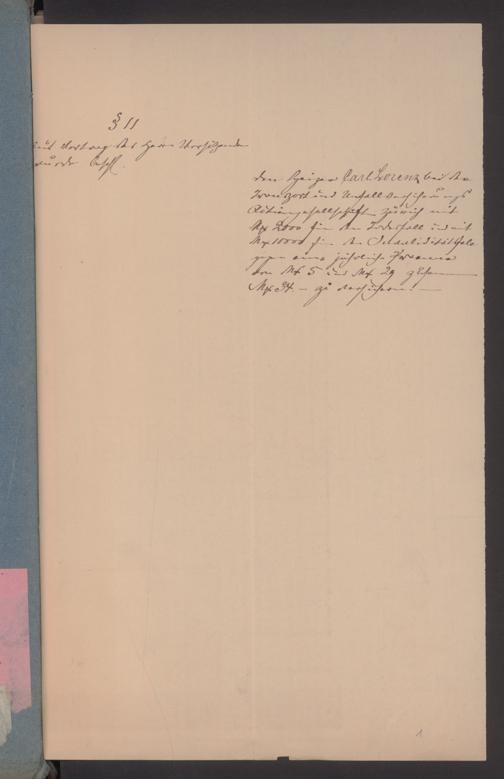 § 11
Auf Vortrag des Herrn Vorsitzenden
wurde beschl.
den Heizer Carl Lorenz bei der
Transport und Unfallversicherungs
Actiengesellschaft Zürich mit
Mk 2000 für den Todesfall und mit
Mk 10000 für den Invaliditätsfall
gegen eine jährliche Praemie
von Mk 5 und Mk 29
Mk 34 – zu versichern. –
1